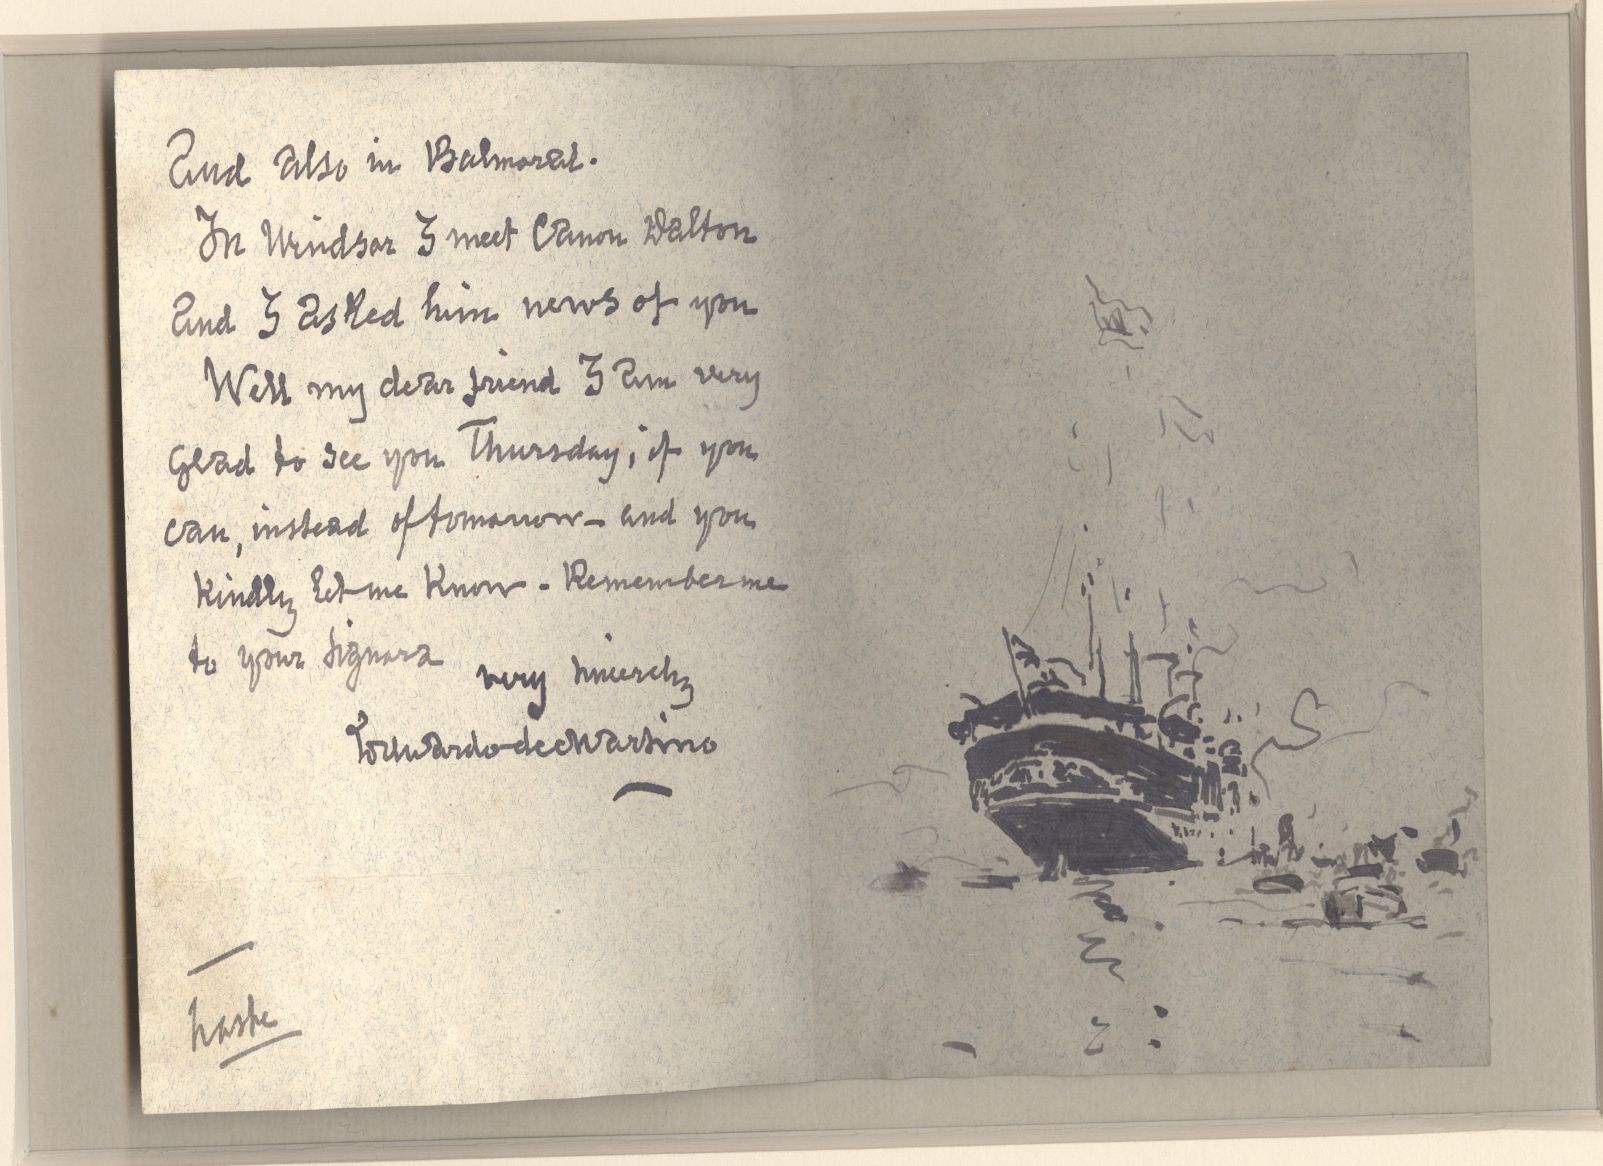 and also in Balmoral.
In Windsor I meet Canon Dalton
and I asked him news of you
Well my dear friend I am very
glad to see you Thursday, if you
can, instead of tomorrow - and you
Kindly let me Know - Remember me
to your Signora
very sincerely
Eduardo de Martino
haste